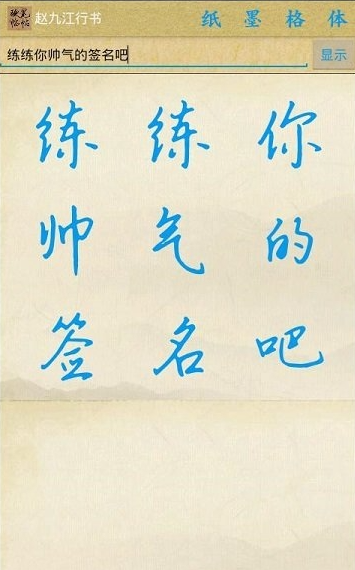 硬笔临帖
赵九江行书 纸 墨 格 体
练练你帅气的签名吧 显示
练 练 你
帅 气 的
签 名 吧